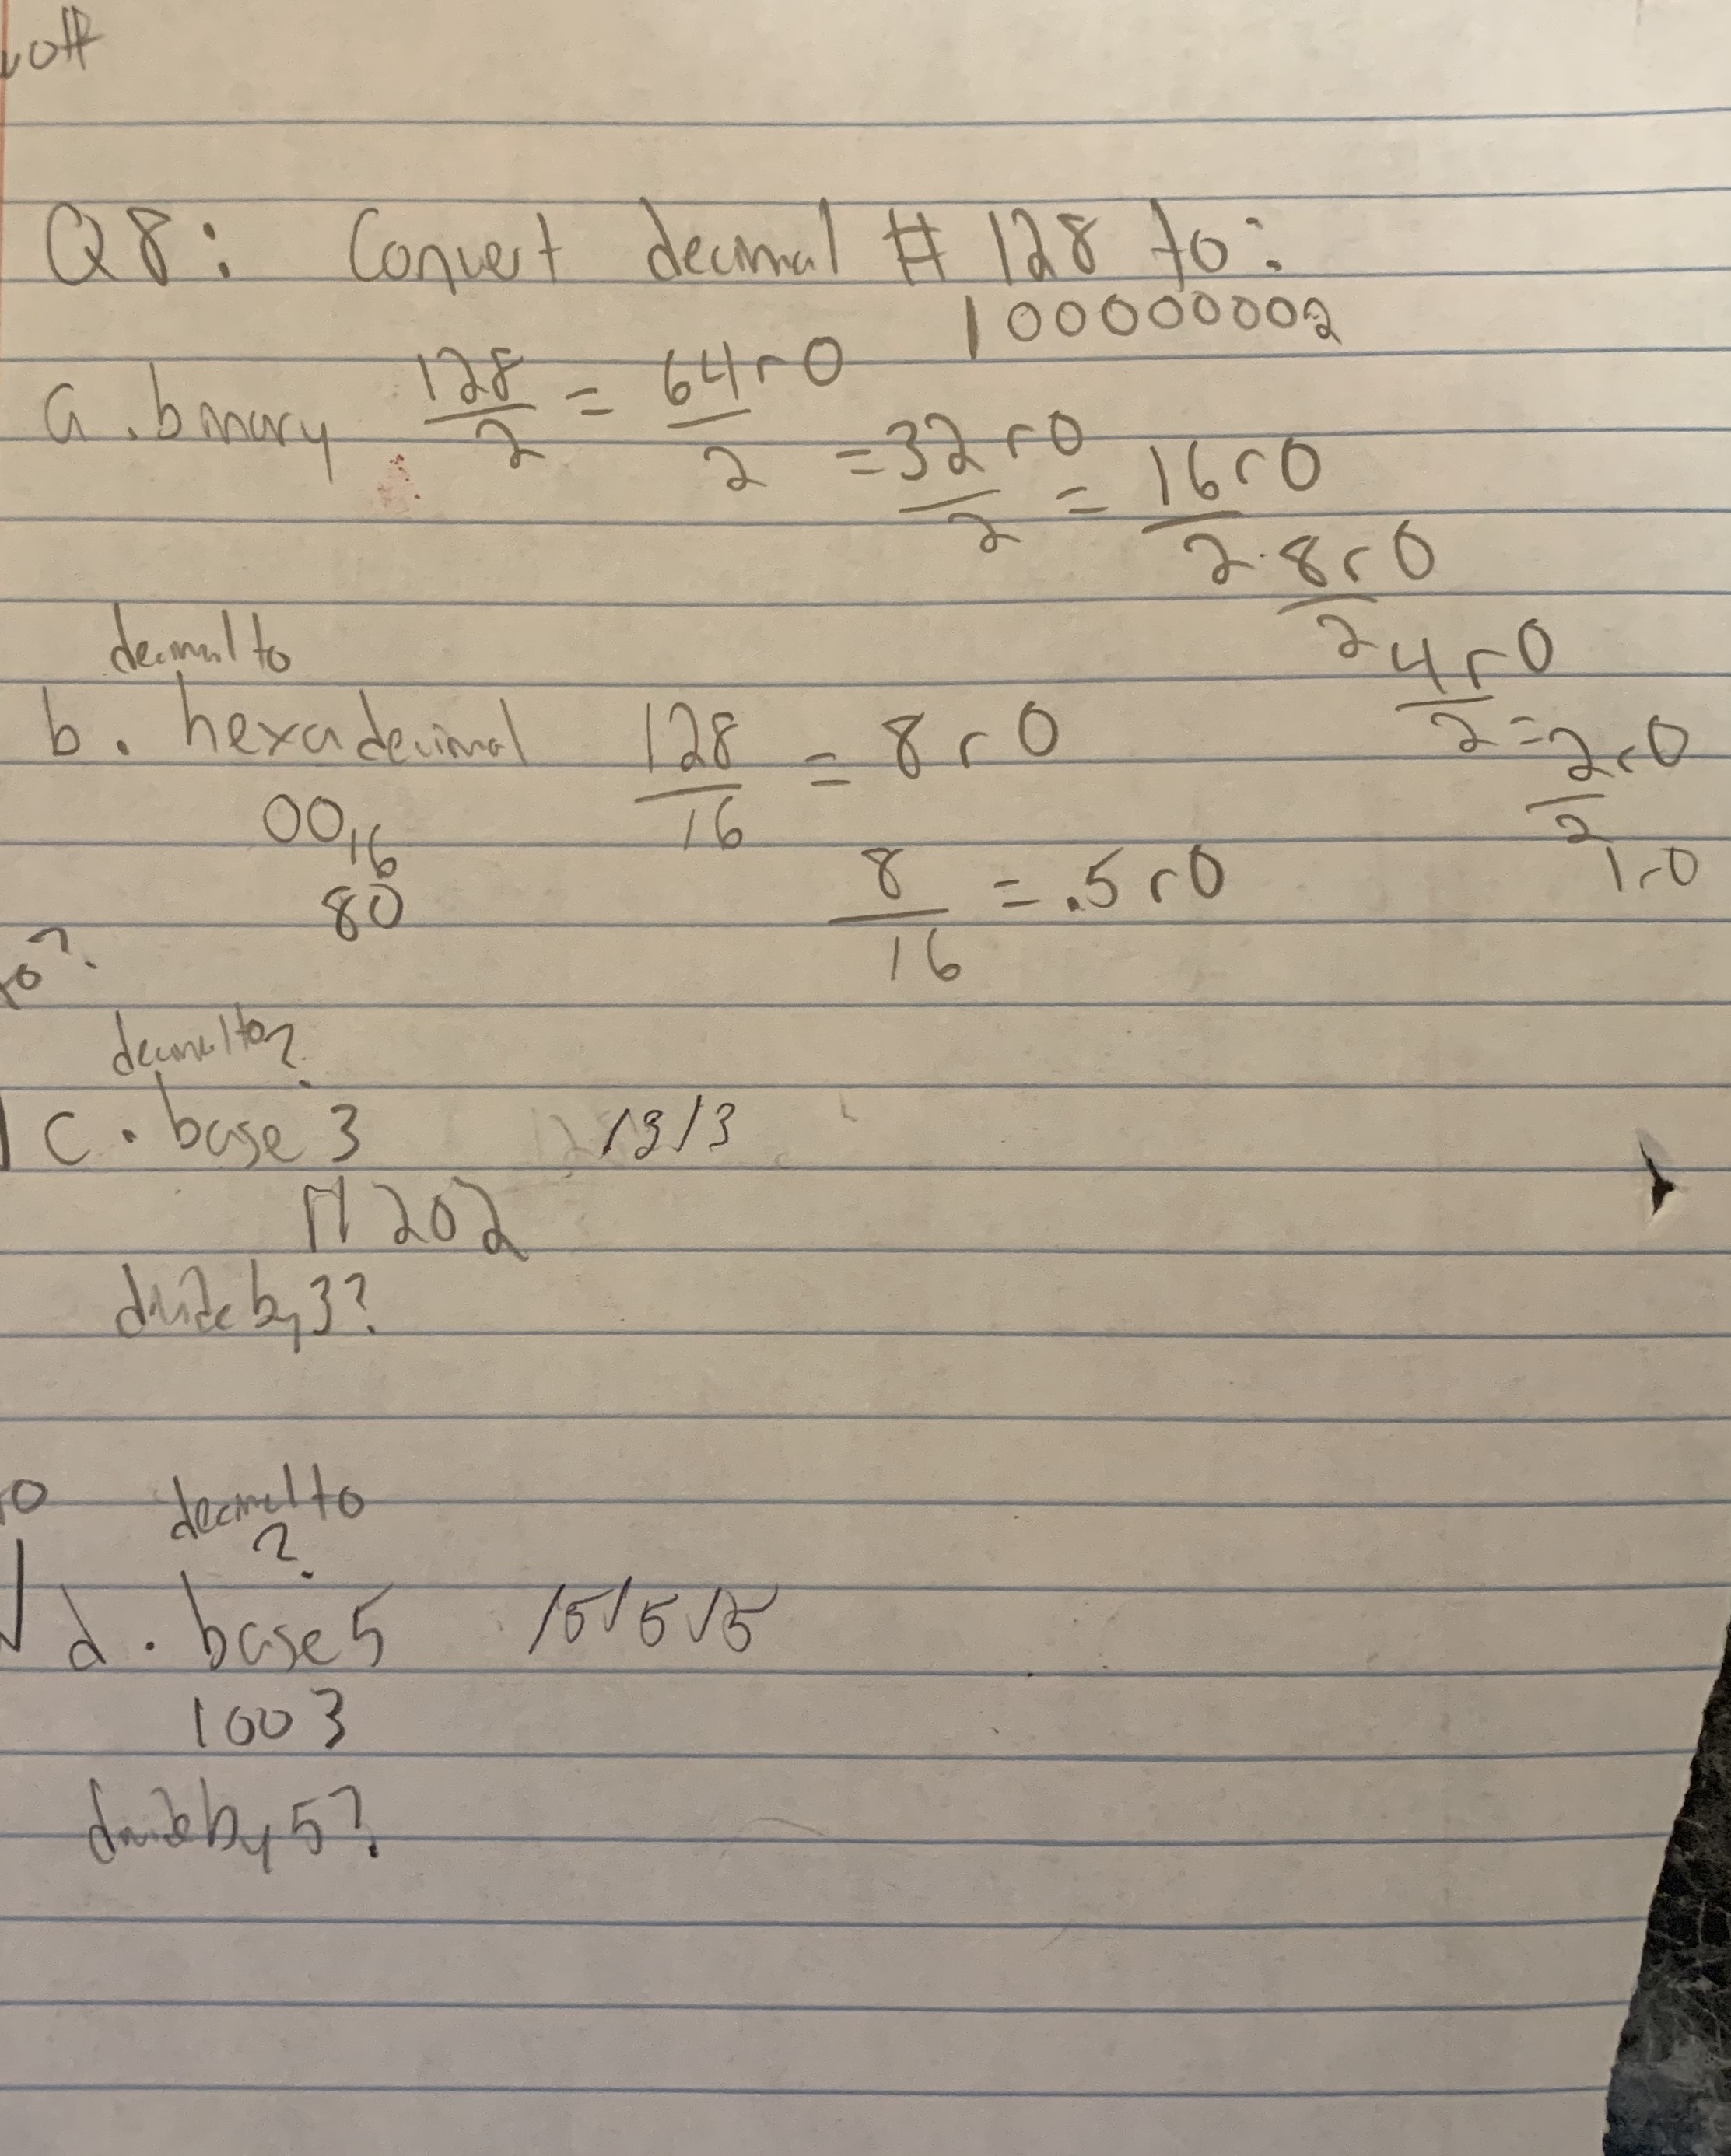 Q8: Convert decimal # 128 to:
10000000₂
a. binary 128/2 = 64 r 0
/2 = 32 r 0
/2 = 16 r 0
/2 8 r 0
/2 4 r 0
/2 = 2 r 0
/2
1 r 0
decimal to
b. hexadecimal 128/16 = 8 r 0
00₁₆
80
8/16 = .5 r 0
decimal to?
c. base 3 /3/3
11202
divide by 3?
decimal to
?
d. base 5 /5/5/5
1003
divide by 5?